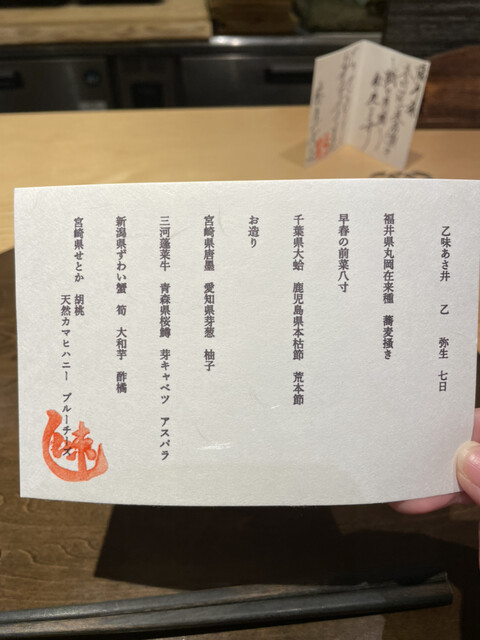 乙味あさ井 乙 弥生 七日
福井県丸岡在来種 蕎麦掻き
早春の前菜八寸
千葉県大蛤 鹿児島県本枯節 荒本節
お造り
宮崎県唐墨 愛知県芽葱 柚子
三河蓬莱牛 青森県桜鱒 芽キャベツ アスパラ
新潟県ずわい蟹 筍 大和芋 酢橘
宮崎県せとか 胡桃
天然カマヒハニー ブルーチーズ
味